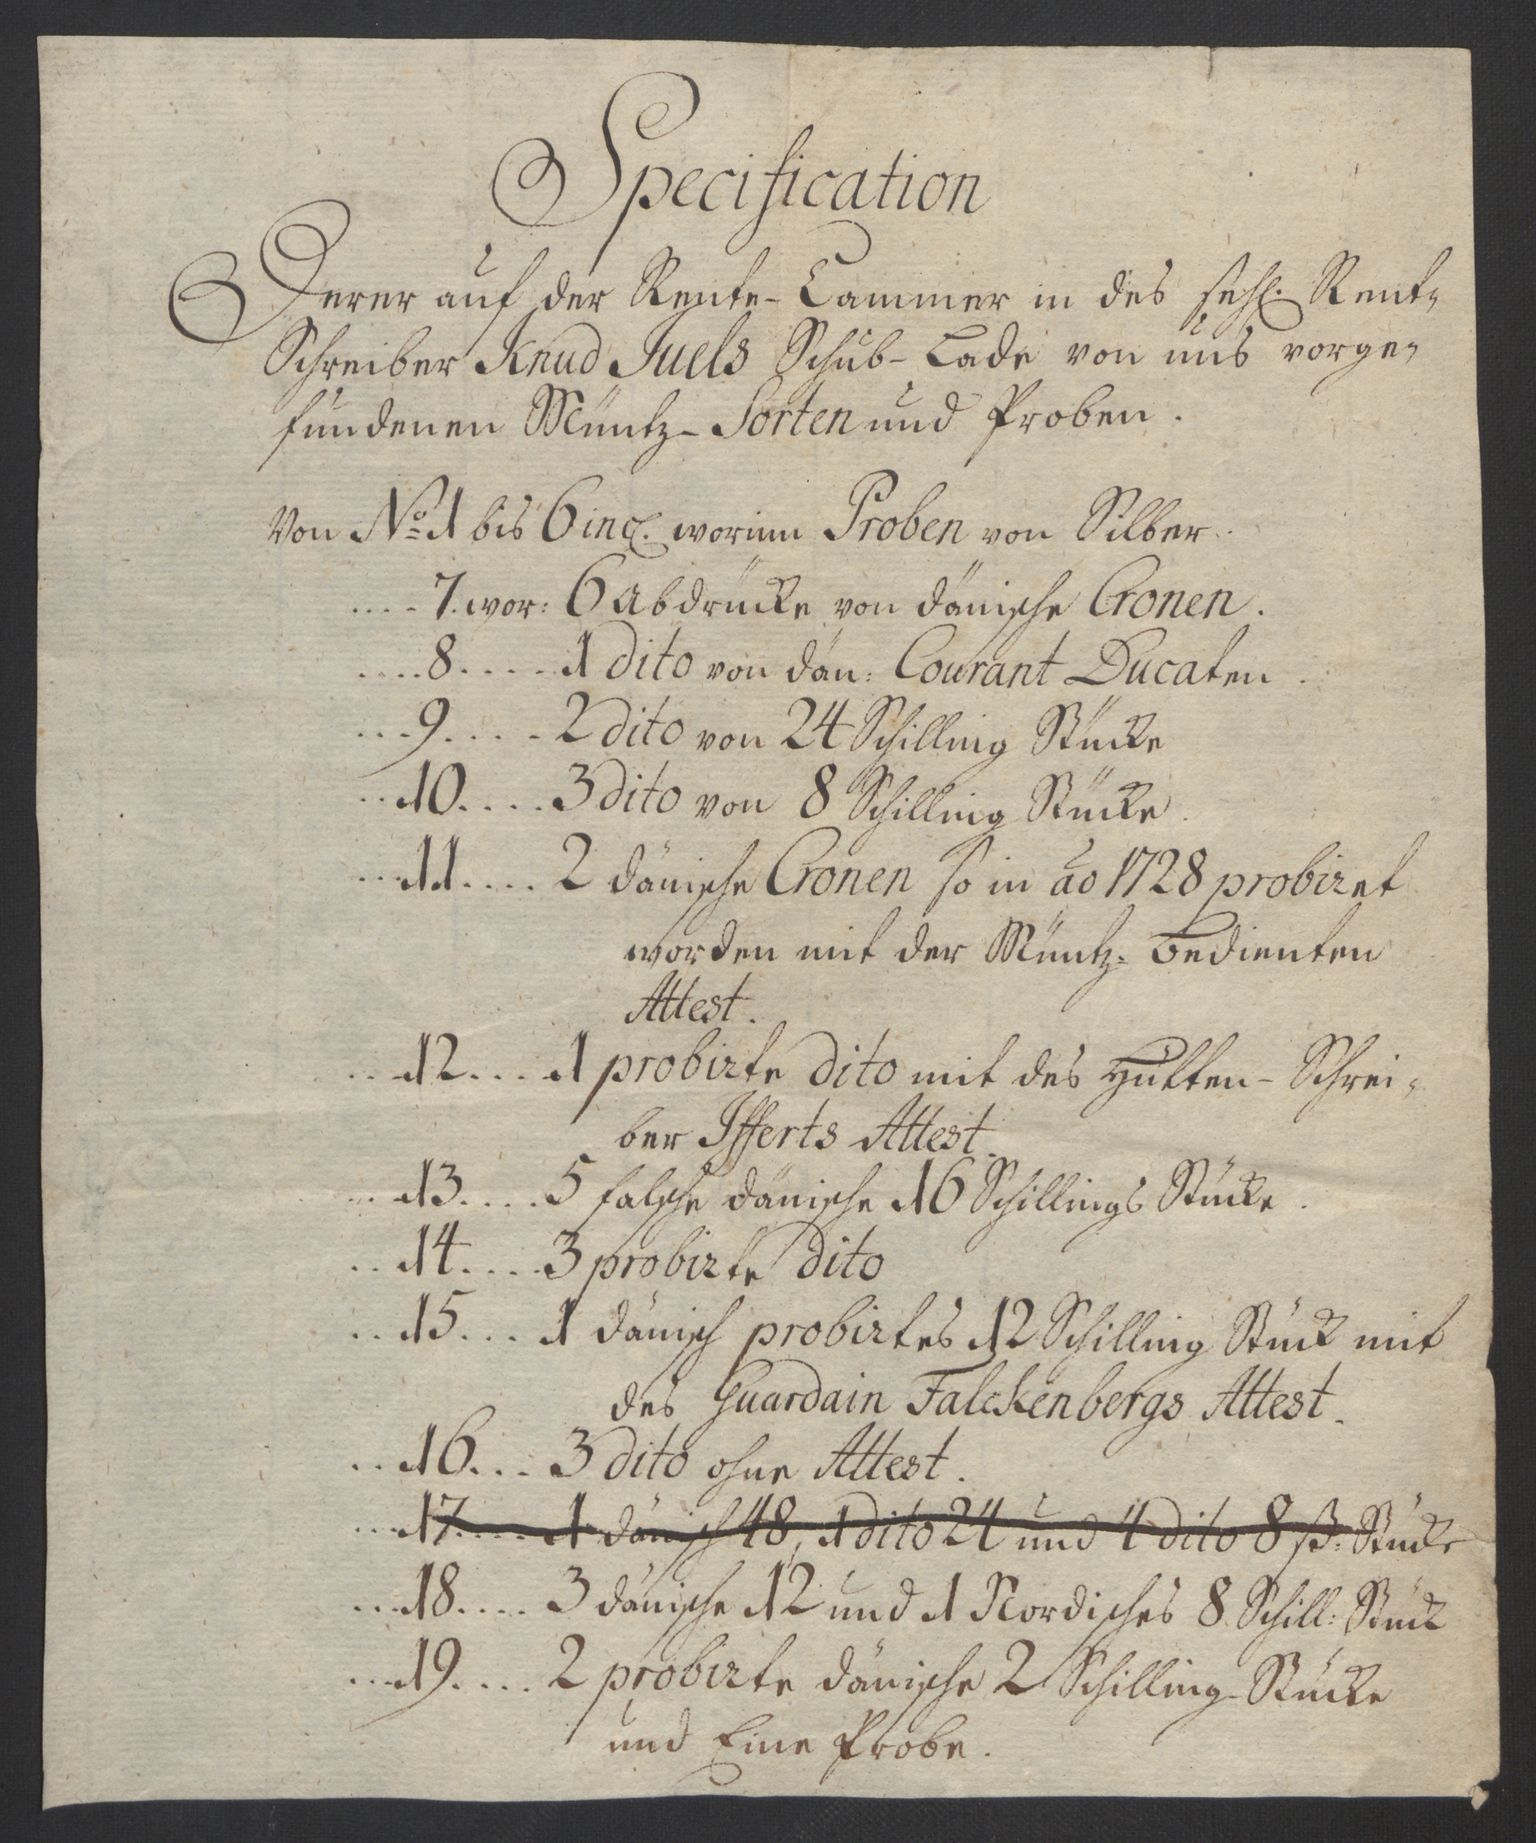 Specification
Derer auf der Rente-Cammer in des sehl. Rent-
Schreiber Knud Juels Schub-Lade von uns vorge-
fundenen Müntz-Sorten und Proben.
Von No. 1 bis 6 incl. worinn Proben von Silber.
.... 7. wor: 6 Abdrücke von dänische Cronen.
.... 8. .... 1 dito von dän: Courant Ducaten.
... 9. .... 2 dito von 24 Schilling Stücke
.. 10. ... 3 dito von 8 Schilling Stücke.
... 11. .... 2 dänische Cronen so in ao 1728 probiret
worden mit der Müntz-Bedienten
Attest.
.. 12. ... 1 probirte dito mit des Hütten-Schrei-
ber Ifferts Attest.
.. 13. ... 5 falsche dänische 16 Schillings Stücke.
.. 14. ... 3 probirte dito
.. 15. ... 1 dänisch probirtes 12 Schilling Stück mit
des Guardain Falckenbergs Attest.
.. 16. .. 3 dito ohne Attest.
... 17. ... 1 dänisch 48, 1 dito 24 und 4 dito 8 ß: Stücke
... 18. ... 3 dänische 12 und 1 Nordisches 8 Schill: Stück
... 19. ... 2 probirte dänische 2 Schilling-Stücke
und Eine Probe.